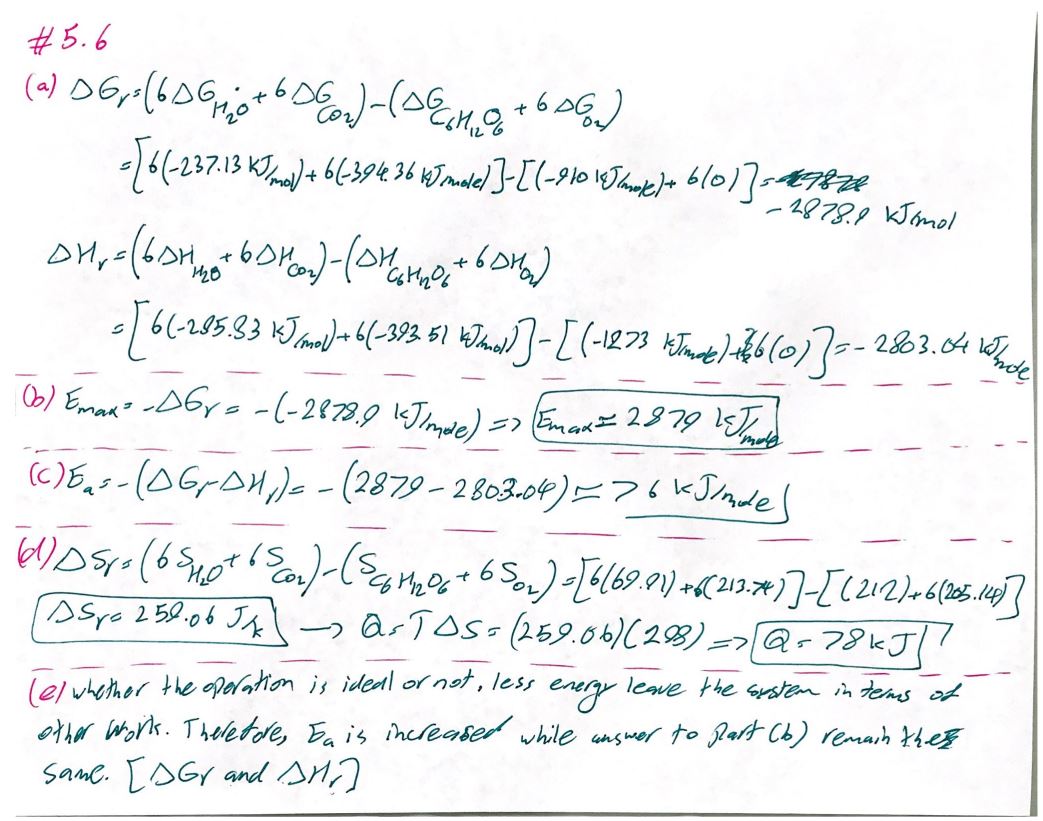 #5.6
(a) ΔGr=(6ΔG H₂O + 6ΔG CO₂)-(ΔG C₆H₁₂O₆ + 6ΔG O₂)
=[6(-237.13 kJ/mol)+6(-394.36 kJ/mole)]-[(-910 kJ/mole)+ 6(0)]=
-2878.9 kJ/mol
ΔHr=(6ΔH H₂O + 6ΔH CO₂)-(ΔH C₆H₁₂O₆ + 6ΔH O₂)
=[6(-285.83 kJ/mol)+6(-393.51 kJ/mol)]-[(-1273 kJ/mole)+6(0)]=-2803.04 kJ/mole
(b) Emax=-ΔGr=-(-2878.9 kJ/mole)=> Emax≃2879 kJ/mole
(c) Ea=-(ΔGr-ΔHr)=-(2879-2803.04)≃76 kJ/mole
(d) ΔSr=(6S H₂O + 6S CO₂)-(S C₆H₁₂O₆ + 6S O₂)=[6(69.91)+6(213.74)]-[(212)+6(205.14)]
ΔSr=259.06 J/k → Q=TΔS=(259.06)(298)=> Q=78kJ
(e) whether the operation is ideal or not, less energy leave the system in terms of
other work. Therefore, Ea is increased while answer to part (b) remain the
same. [ΔGr and ΔHr]